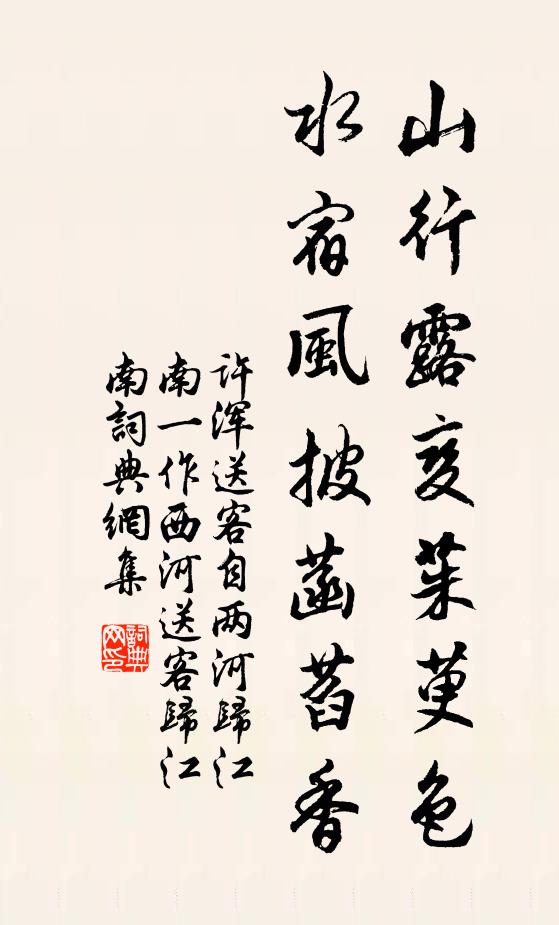 山行露变茱萸色
水宿風披菡萏香
许渾送客自两河歸江
南一作西河送客歸江
南詞典網集
詞典
网印